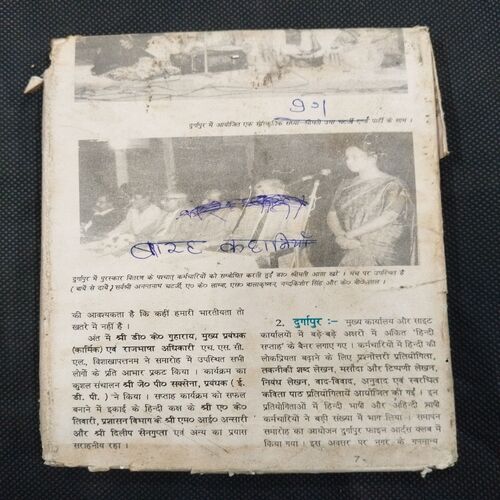 901
दुर्गापुर में आयोजित एक सांस्कृतिक संध्या श्रीमती उमा चटर्जी एण्ड पार्टी के साथ ।
बारह कहानियाँ
दुर्गापुर में पुरस्कार वितरण के पश्चात् कर्मचारियों को सम्बोधित करती हुई डा० श्रीमती आशा खरे । मंच पर उपस्थित हैं
( बायें से दायें ) सर्वश्री अनन्तनाथ चटर्जी, ए० के० लाम्बा, एस० बालाकृष्णन, नन्दकिशोर सिंह और के०
की आवश्यकता है कि कहीं हमारी भारतीयता तो
खतरे में नहीं है ।
अंत में श्री डी० के० गुहाराय, मुख्य प्रबंधक
(कार्मिक) एवं राजभाषा अधिकारी एम. एस. सी.
एल., विशाखापतनम ने समारोह में उपस्थित सभी
लोगों के प्रति आभार प्रकट किया । कार्यक्रम का
कुशल संचालन श्री जे० पी० सक्सेना, प्रबंधक ( ई.
डी. पी. ) ने किया । सप्ताह कार्यक्रम को सफल
बनाने में इकाई के हिन्दी कक्ष के श्री ए० के०
तिवारी, प्रशासन विभाग के श्री एम० आई० अन्सारी
और श्री दिलीप सेनगुप्ता एवं अन्य का प्रयास
सराहनीय रहा ।
2. दुर्गापुर :— मुख्य कार्यालय और साइट
कार्यालयों में बड़े-बड़े अक्षरों में अंकित 'हिन्दी
सप्ताह' के बैनर लगाए गए । कर्मचारियों में हिन्दी की
लोकप्रियता बढ़ाने के लिए प्रश्नोत्तरी प्रतियोगिता,
तकनीकी शब्द लेखन, मसौदा और टिप्पणी लेखन,
निबंध लेखन, वाद-विवाद, अनुवाद एवं स्वरचित
कविता पाठ प्रतियोगितायें आयोजित की गईं । इन
प्रतियोगिताओं में हिन्दी भाषी और अहिन्दी भाषी
कर्मचारियों ने बड़ी संख्या में भाग लिया । समापन
समारोह का आयोजन दुर्गापुर फाइन आर्ट्स क्लब में
किया गया । इस अवसर पर नगर के गणमान्य
7